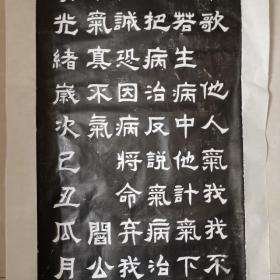 歌 他人氣我我不
若生病中他計氣下
把病治反說氣病治
誠恐因病將命弃我
氣真不氣 閻公
光緒歲次己丑瓜月